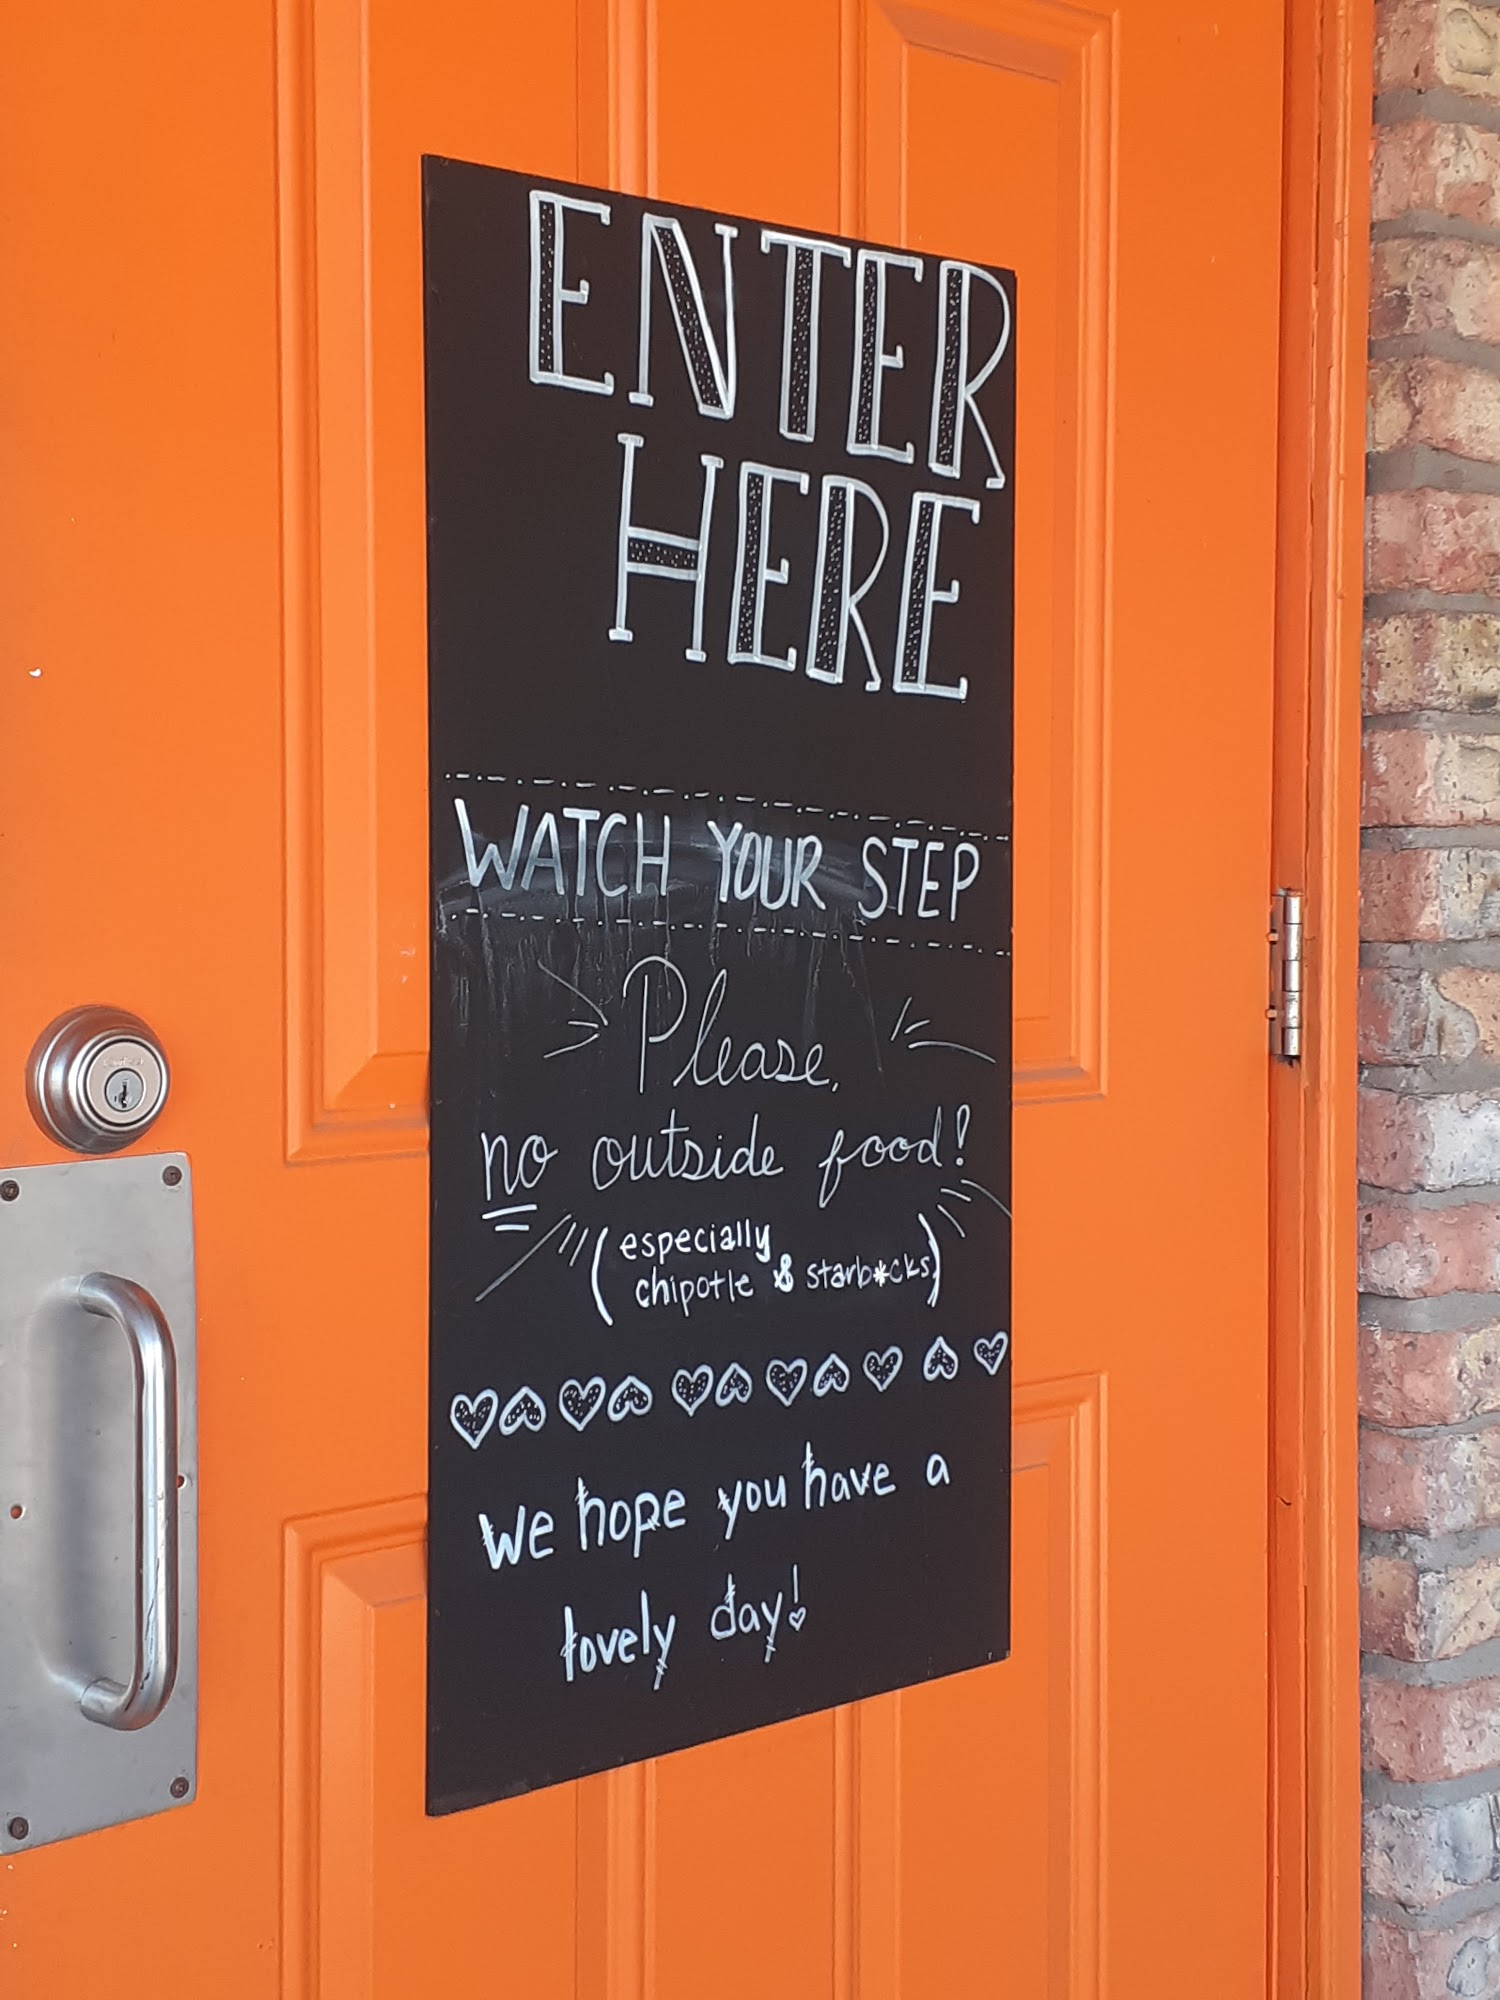 ENTER
HERE
WATCH YOUR STEP
Please,
no outside food!
(especially
chipotle & starb*cks)
We hope you have a
lovely day!